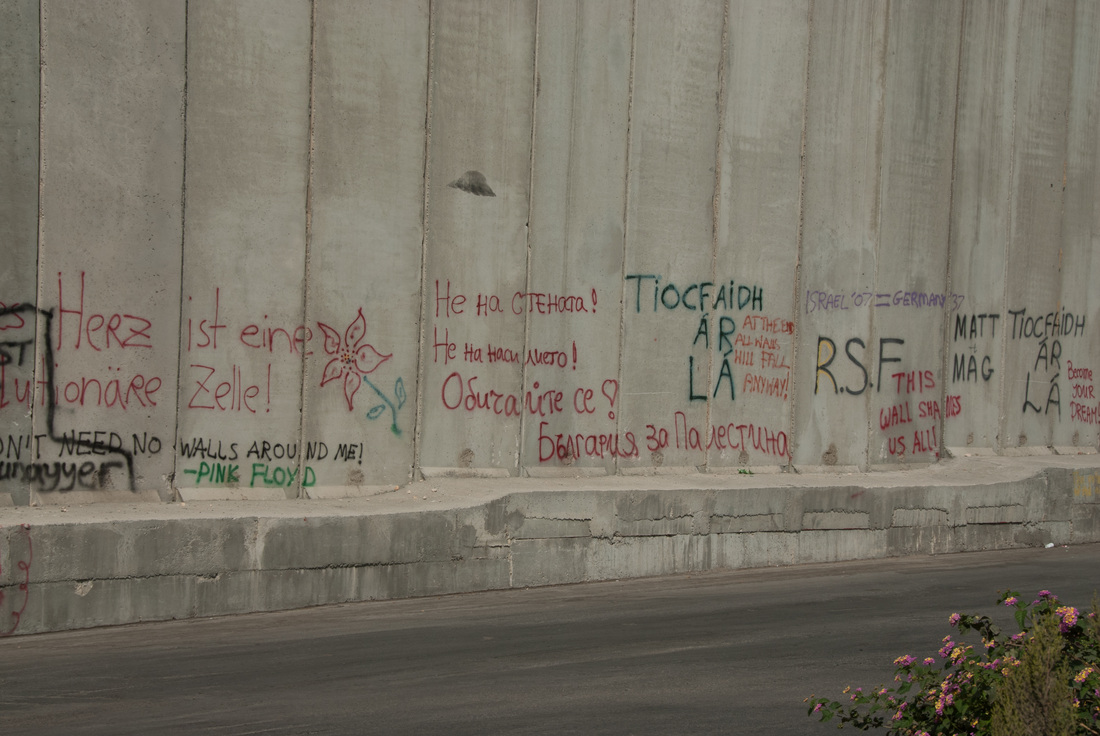 Herz ist eine
lutionäre Zelle!
ON'T NEED NO WALLS AROUND ME!
-PINK FLOYD
Не на СТЕНата!
Не на насилието!
Обичайте се
България за Палестина
TIOCFAIDH
ÁR
LÁ
AT THE END
ALL WALLS
WILL FALL
ANYWAY!
ISRAEL '07 = GERMANY '37
R.S.F
THIS
WALL SHAMES
US ALL!
MATT
MÁG
TIOCFAIDH
ÁR
LÁ
Become
YOUR
DREAM!